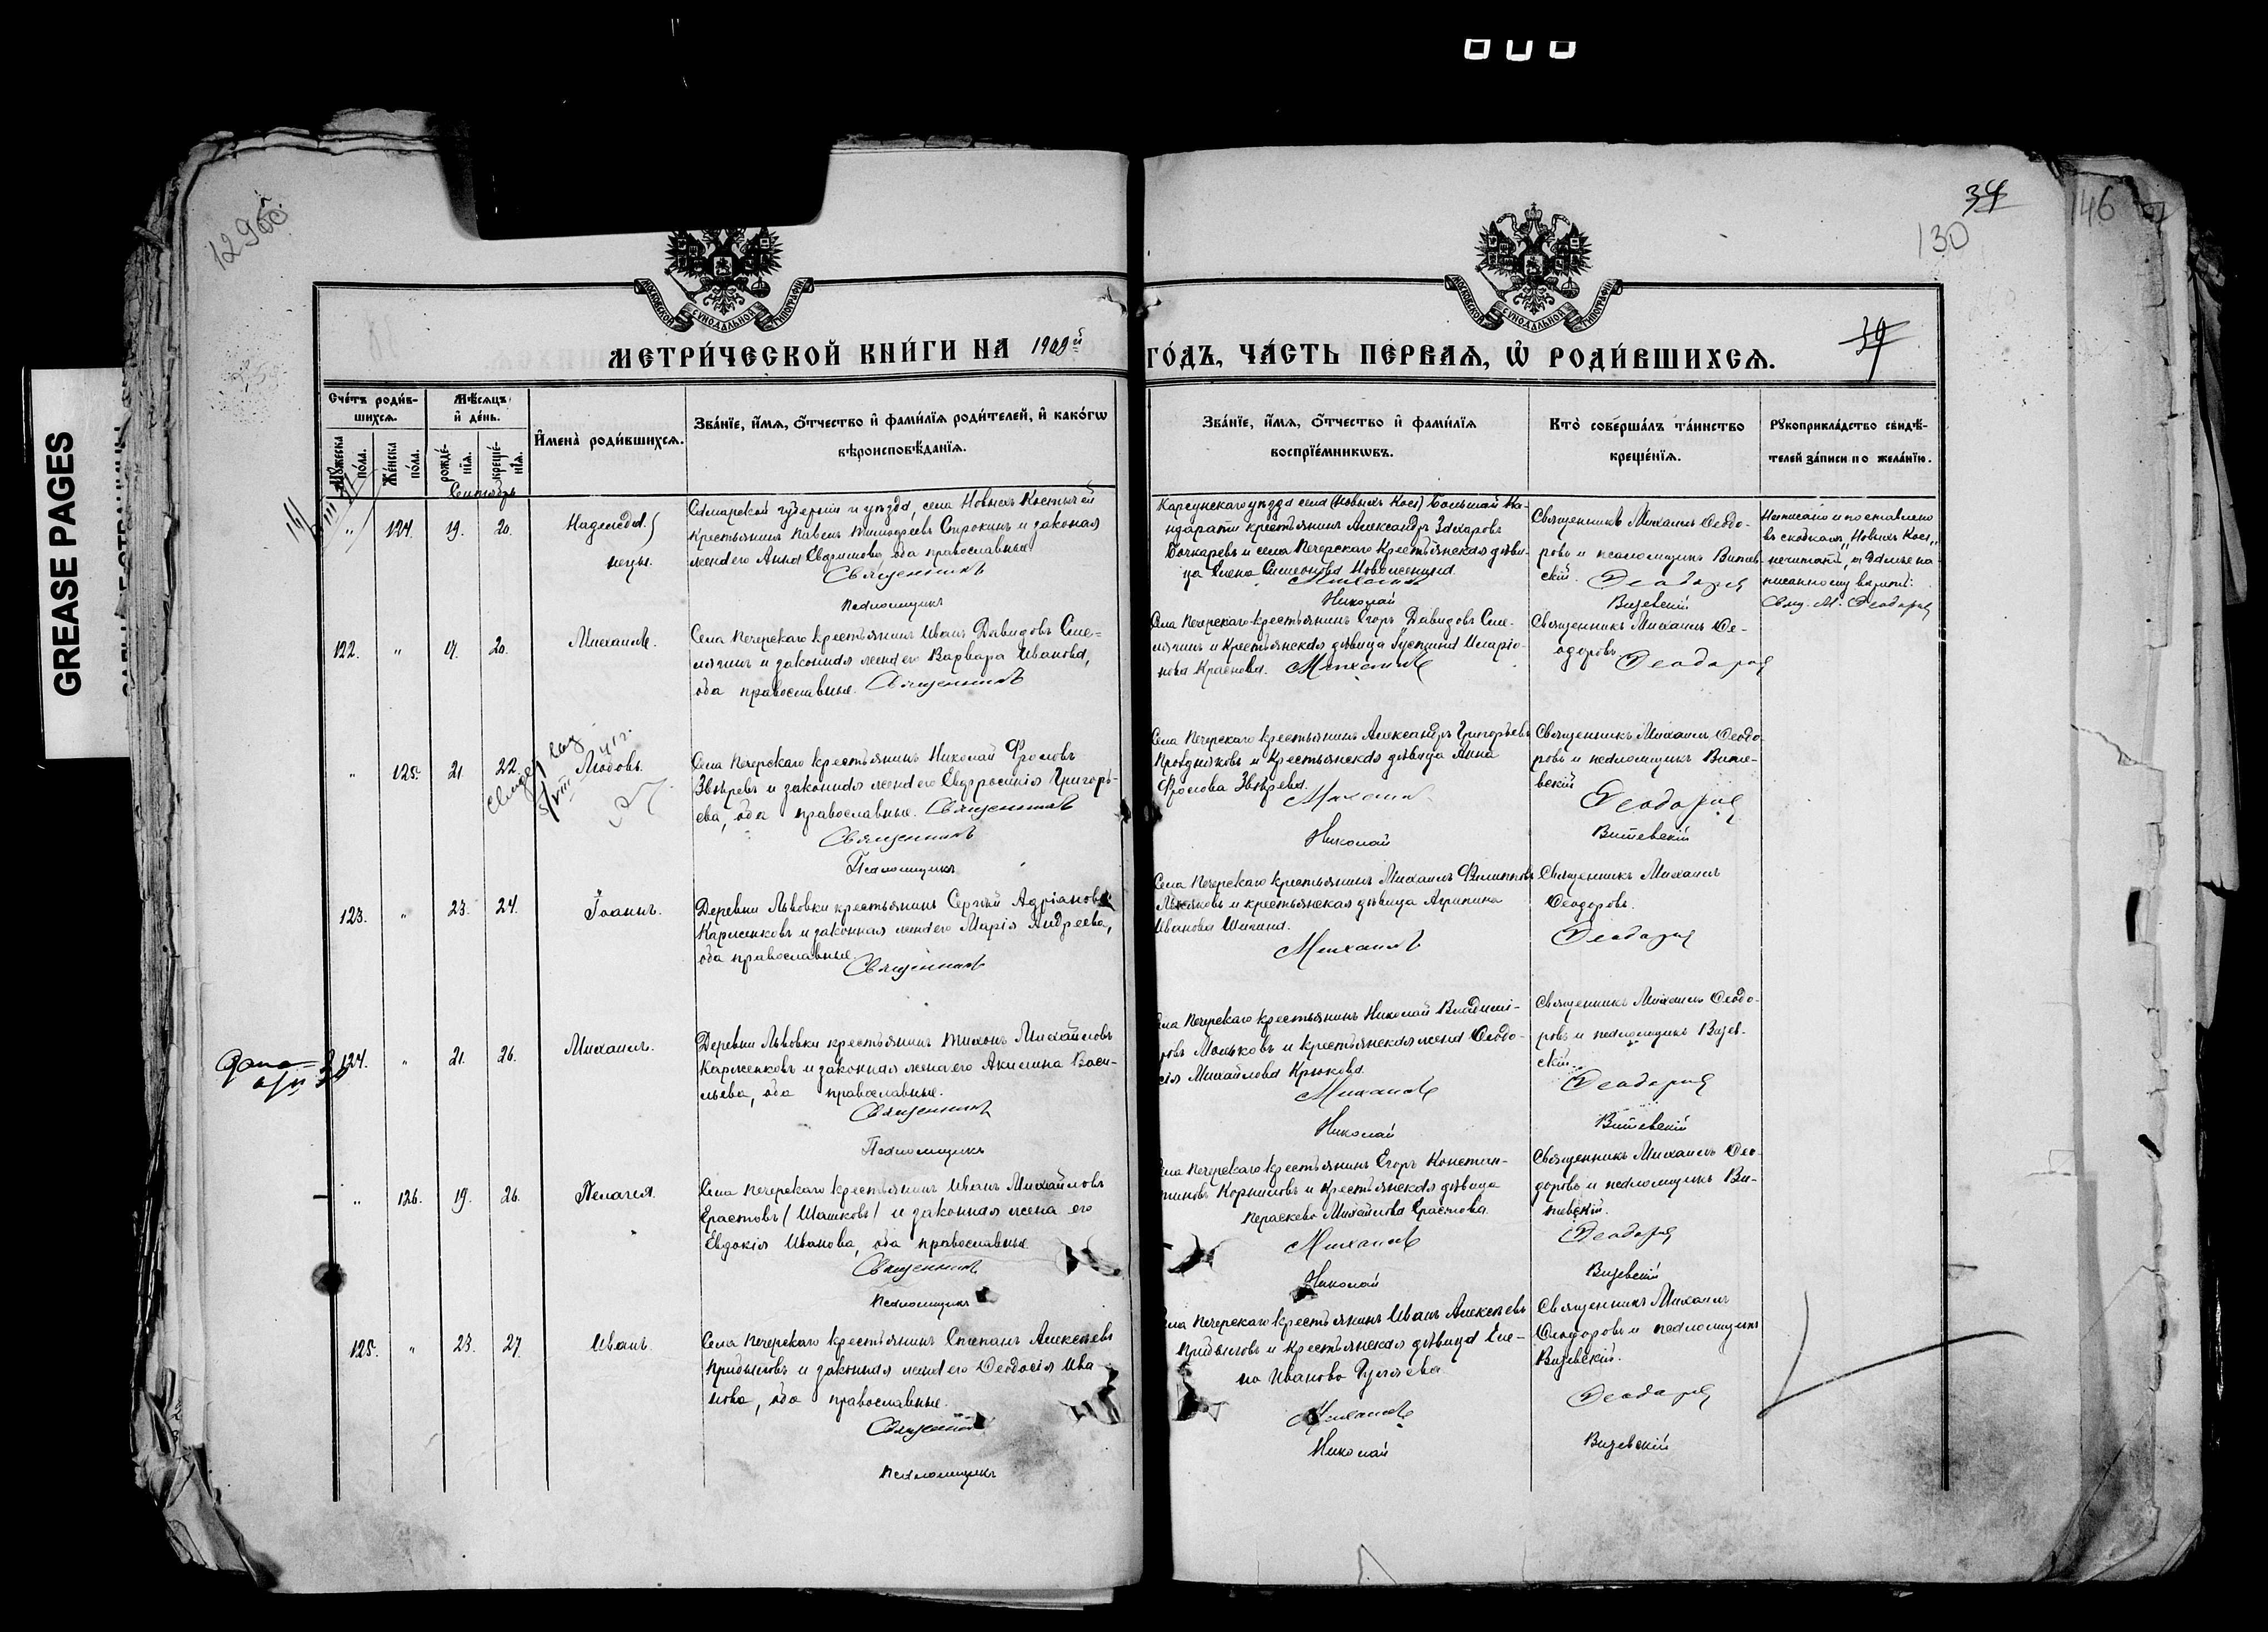 GREASE PAGES
129 об.
34
130
146
39
МОСКОВСКОЙ СѴНОДАЛЬНОЙ ТИПОГРАФІИ
МОСКОВСКОЙ СѴНОДАЛЬНОЙ ТИПОГРАФІИ
МЕТРИ́ЧЕСКОЙ КНИ́ГИ НА 1909й ГО́ДЪ, ЧА́СТЬ ПЕ́РВАѦ, Ѡ҆ РОДИ́ВШИХСѦ.
Сче́тъ роди́в-
шихсѧ.
Мꙋ́жеска
по́ла.
Же́нска
по́ла.
Мѣ́сѧцъ
и҆ де́нь.
рожде́-
нїѧ.
креще́-
нїѧ.
И҆мена̀ роди́вшихсѧ.
Зва́нїе, и҆́мѧ, ѻ҆́тчество и҆ фами́лїѧ роди́телей, и҆ како́гѡ
вѣроисповѣ́данїѧ.
Зва́нїе, и҆́мѧ, ѻ҆́тчество и҆ фами́лїѧ
воспрїе́мникѡвъ.
Кто̀ соверша́лъ та́инство
креще́нїѧ.
Рꙋкоприкла́дство свидѣ́-
телей за́писи по жела́нїю.
Сентябрь
" 124. 19. 20.
Надежда.
Самарской губерніи и уѣзда, села Новыхъ Костычей
крестьянинъ Павелъ Тимофеевъ Сорокинъ и законная
жена его Анна Евдокимова, оба православные
Священникъ
Псаломщикъ
Карсунскаго уѣзда села (Новыхъ Кост) Большой Ка-
ндарати крестьянинъ Александръ Захаровъ
Бочкаревъ и села Печерскаго крестьянская дѣви-
ца Елена Симеонова Новоженина.
Михаилъ
Николай
Священникъ Михаилъ Ѳеодо-
ровъ и псаломщикъ Витев-
скій. Ѳеодоровъ
Витевскій
Написано и поставлено
въ скобкахъ "Новыхъ Кост"
нечитать, а далѣе на-
писанному вѣрить:
Свящ. М. Ѳеодоровъ
122. " 19. 20.
Михаилъ.
Села Печерскаго крестьянинъ Иванъ Давидовъ Сме-
лягинъ и законная жена его Варвара Иванова,
оба православные. Священникъ
Села Печерскаго крестьянинъ Егоръ Давидовъ Сме-
лягинъ и крестьянская дѣвица Іустина Иларіо-
нова Краснова. Михаилъ
Священникъ Михаилъ Ѳе-
одоровъ. Ѳеодоровъ
" 125. 21. 22.
Любовь.
Села Печерскаго крестьянинъ Николай Фроловъ
Звѣревъ и законная жена его Евфросинія Григорь-
ева, оба православные. Священникъ
Священникъ
Псаломщикъ
Села Печерскаго крестьянинъ Александръ Григорьевъ
Праздниковъ и крестьянская дѣвица Анна
Фролова Звѣрева.
Михаилъ
Николай
Священникъ Михаилъ Ѳеодо-
ровъ и псаломщикъ Вите-
вскій
Ѳеодоровъ
Витевскій
123. " 23. 24.
Іоаннъ.
Деревни Львовки крестьянинъ Сергѣй Адріановъ
Карженковъ и законная жена его Марія Андреева,
оба православные.
Священникъ
Села Печерскаго крестьянинъ Михаилъ Филипповъ
и крестьянская дѣвица Агрипина
Иванова Шигина.
Михаилъ
Священникъ Михаилъ
Ѳеодоровъ.
Ѳеодоровъ
124. " 21. 26.
Михаилъ.
Деревни Львовки крестьянинъ Тихонъ Михайловъ
Карженковъ и законная жена его Акилина Васи-
льева, оба православные.
Священникъ
Псаломщикъ
Села Печерскаго крестьянинъ Николай Владимі-
ровъ Мальковъ и крестьянская жена Ѳеодо-
сія Михайлова Крюкова.
Михаилъ
Николай
Священникъ Михаилъ Ѳеодо-
ровъ и псаломщикъ Витев-
скій.
Ѳеодоровъ
Витевскій
" 126. 19. 26.
Пелагея.
Села Печерскаго крестьянинъ Иванъ Михайловъ
Ерастовъ (Шашковъ) и законная жена его
Евдокія Иванова, оба православные.
Священникъ
Псаломщикъ
Села Печерскаго крестьянинъ Егоръ Констан-
тиновъ Корниловъ и крестьянская дѣвица
Параскева Михайлова Ерастова.
Михаилъ
Николай
Священникъ Михаилъ Ѳео-
доровъ и псаломщикъ Ви-
тевскій.
Ѳеодоровъ
Витевскій
125. " 23. 27.
Иванъ.
Села Печерскаго крестьянинъ Степанъ Алексѣевъ
Прибыловъ и законная жена его Ѳеодосія Ива-
нова, оба православные.
Священникъ
Псаломщикъ
Села Печерскаго крестьянинъ Иванъ Алексѣевъ
Прибыловъ и крестьянская дѣвица Еле-
на Иванова Гуляева.
Михаилъ
Николай
Священникъ Михаилъ
Ѳеодоровъ и псаломщикъ
Витевскій.
Ѳеодоровъ
Витевскій